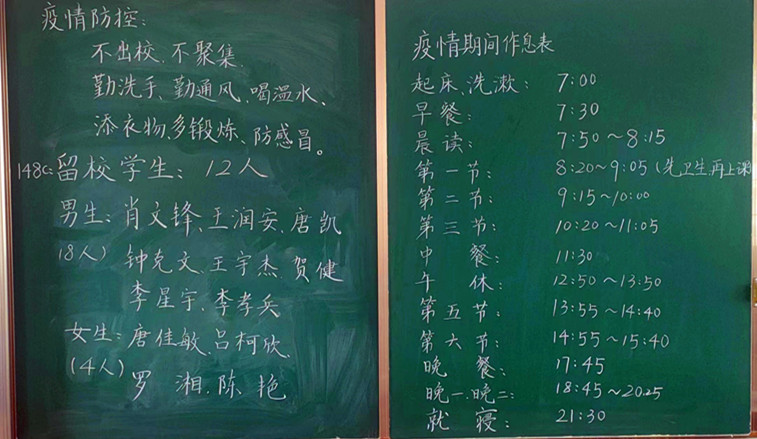 疫情防控:
不出校、不聚集、
勤洗手、勤通风、喝温水、
添衣物、多锻炼、防感冒。
148C:留校学生:12人
男生:肖文锋、王润安、唐凯
(8人)钟克文、王宇杰、贺健
李星宇、李孝兵
女生:唐佳敏、吕柯欣、
(4人)罗 湘、陈 艳
疫情期间作息表
起床、洗漱: 7:00
早餐: 7:30
晨读: 7:50~8:15
第一节: 8:20~9:05(先卫生,再上课)
第二节: 9:15~10:00
第三节: 10:20~11:05
中 餐: 11:30
午 休: 12:50~13:50
第五节: 13:55~14:40
第六节: 14:55~15:40
晚 餐: 17:45
晚一、晚二: 18:45~20:25
就 寝: 21:30